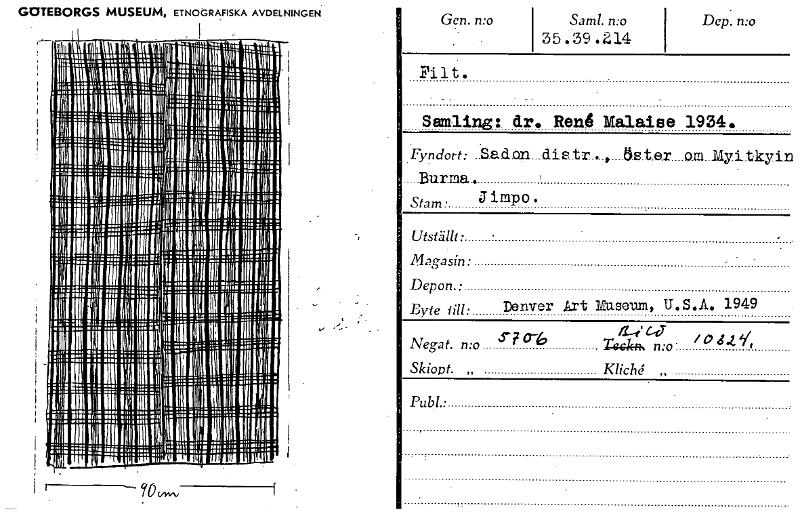 GÖTEBORGS MUSEUM, ETNOGRAFISKA AVDELNINGEN
90 cm
Gen. n:o Saml. n:o Dep. n:o
35.39.214
Filt.
Samling: dr. René Malaise 1934.
Fyndort: Sadon distr., öster om Myitkyin
Burma.
Stam: Jimpo.
Utställt:
Magasin:
Depon.:
Byte till: Denver Art Museum, U.S.A. 1949
Bild
Negat. n:o 5706 Teckn. n:o 10824.
Skiopt. „ Kliché „
Publ.: